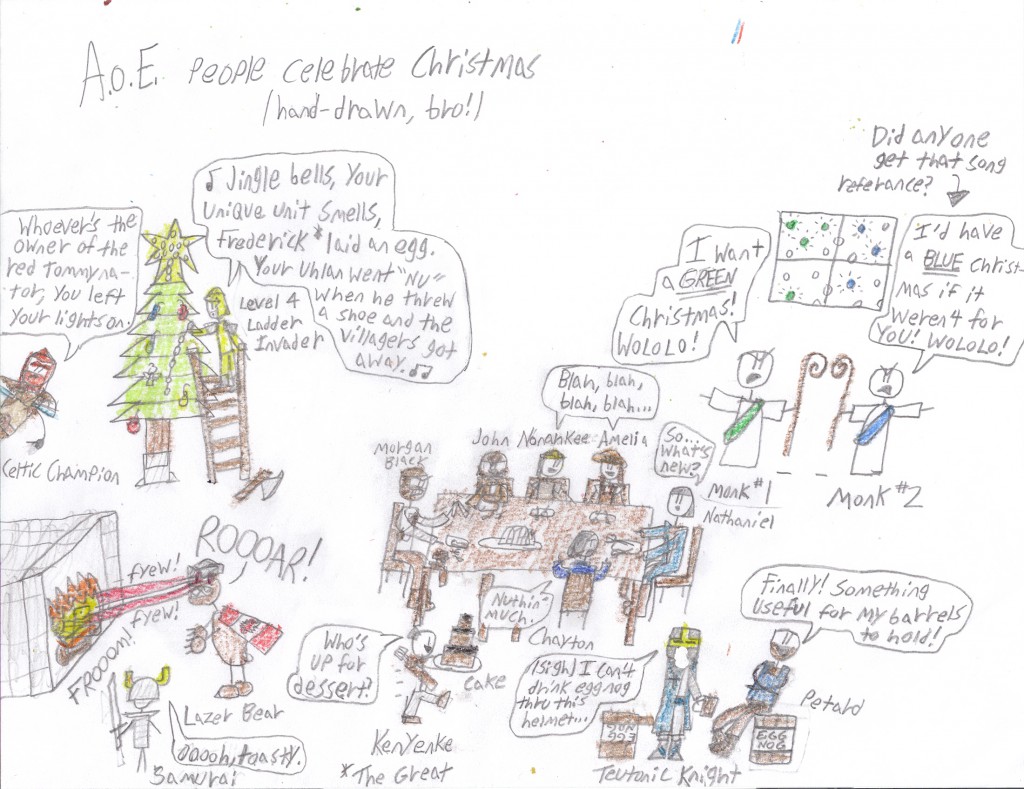 A.o.E. People Celebrate Christmas
(hand-drawn, bro!)
Did anyone
get that song
referance?
Whoever's the
owner of the
red Tommyna-
tor, you left
your lights on.
♪ Jingle bells, Your
Unique Unit Smells,
Frederick * laid an egg.
Your Uhlan went "NU"
when he threw
a shoe and the
villagers got
away. ♫
Level 4
Ladder
Invader
I want
a GREEN
Christmas!
WOLOLO!
I'd have
a BLUE Christ-
mas if it
weren4 for
YOU! WOLOLO!
Celtic Champion
Blah, blah,
blah, blah...
Morgan
Black
John Nonahkee Amelia
So...
what's
new?
Monk #1
Monk #2
Nathaniel
ROOOAR!
fyew!
fyew!
FROOOM!
Lazer Bear
Ooooh, toasty.
Samurai
Who's
UP for
dessert?
Cake
Kenyenke
*The Great
Nuthin'
much!
Chayton
(sigh) I can4
drink eggnog
thru this
helmet...
Finally! Something
Useful for my barrels
to hold!
Petard
EGG
NOG
EGG
NOG
Teutonic Knight